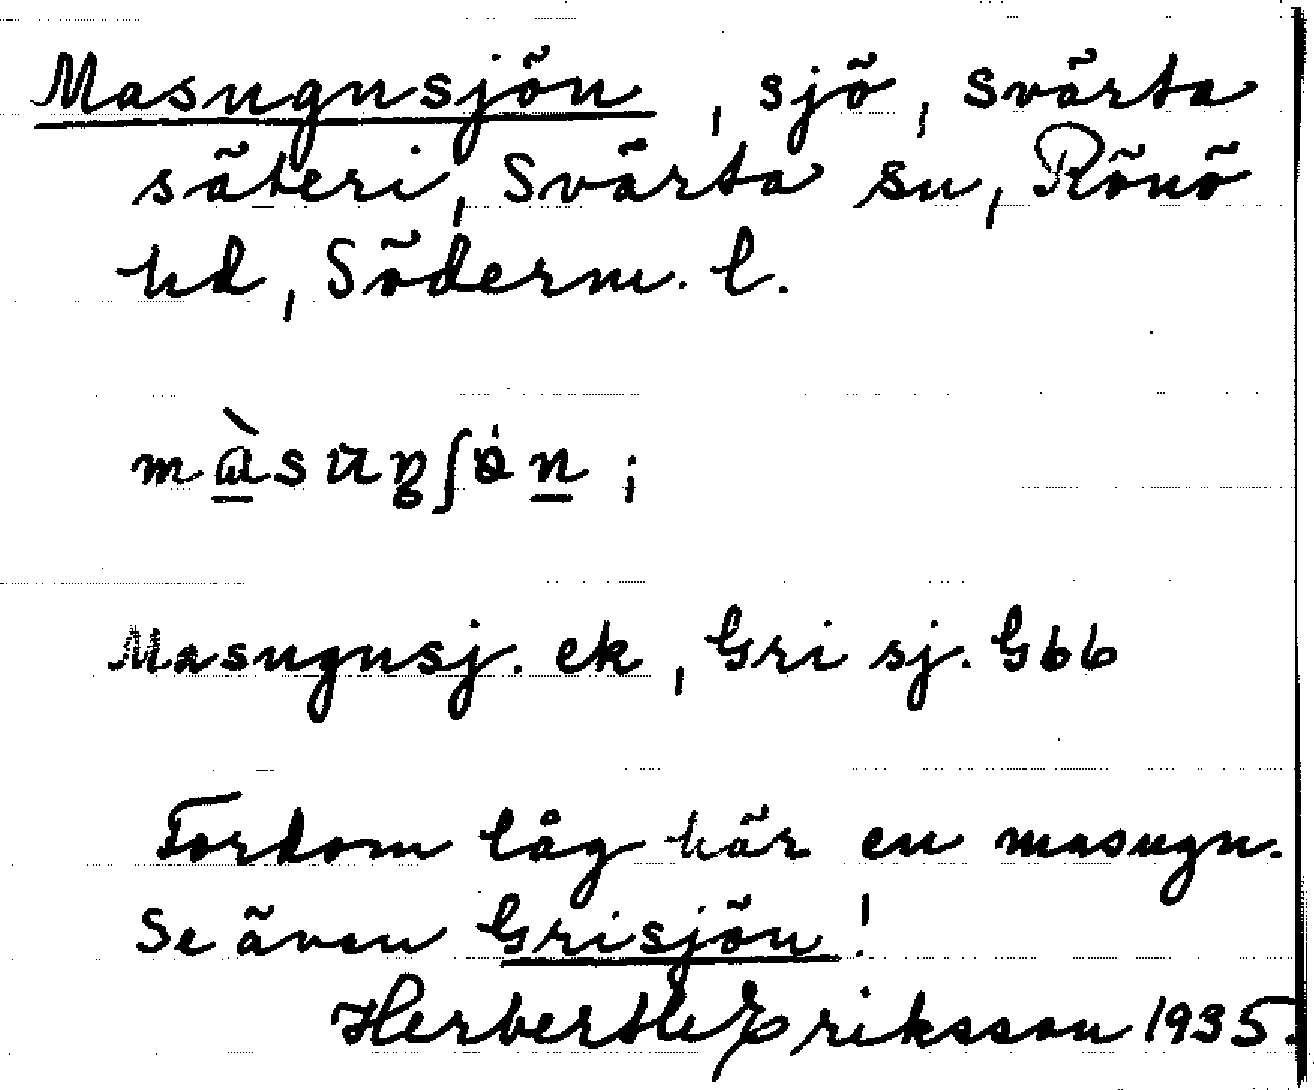 Masugnsjön, sjö, Svärta
säteri, Svärta sn, Rönö
hd, Söderm. l.
Masugnsj. ek, Gri sj. G66
Fordom låg här en masugn.
Se även Grisjön!
Eriksson 1935.